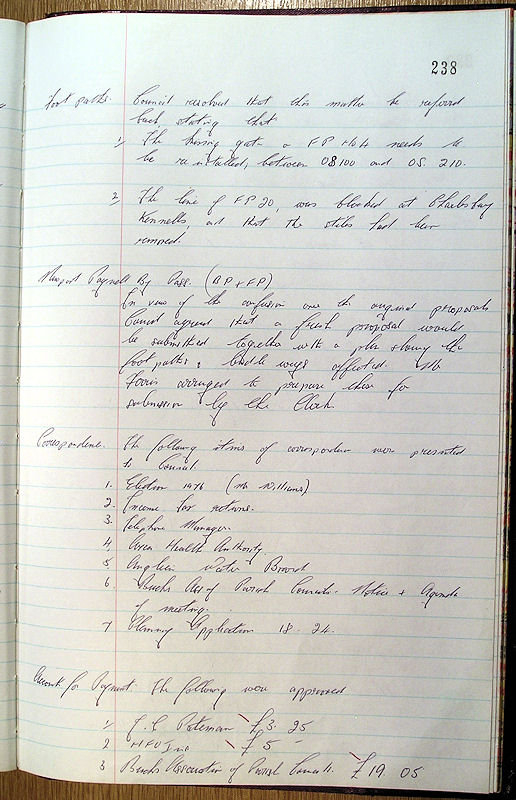 238
Foot paths. Council resolved that this matter be referred
back stating that
1, The kissing gate on FP No 4 needs to
be re installed, between OS 100 and OS. 210.
2, The line of FP 20, was blocked at
Kennels, and that the stiles had been
removed.
Newport Pagnell By Pass. (BP + FP)
In view of the confusion over the original proposals
Council agreed that a fresh proposal would
be submitted together with a plan showing the
foot paths & bridle ways affected. Mr
arranged to prepare these for
submission by the Clerk
Correspondence. The following items of correspondence were presented
to Council.
1. Election 1976 (Mr Williams)
2. Income for actions.
3. Telephone Manager.
4. Area Health Authority
5 Anglian Water Board
6 Bucks Ass of Parish Councils - Notice + Agenda
of meeting.
7 Planning Application 18 - 24.
Account for Payment. The following were approved
1, Pateman £3. 25
2 £5 -
3 Bucks Association of Parish Councils. £19 05